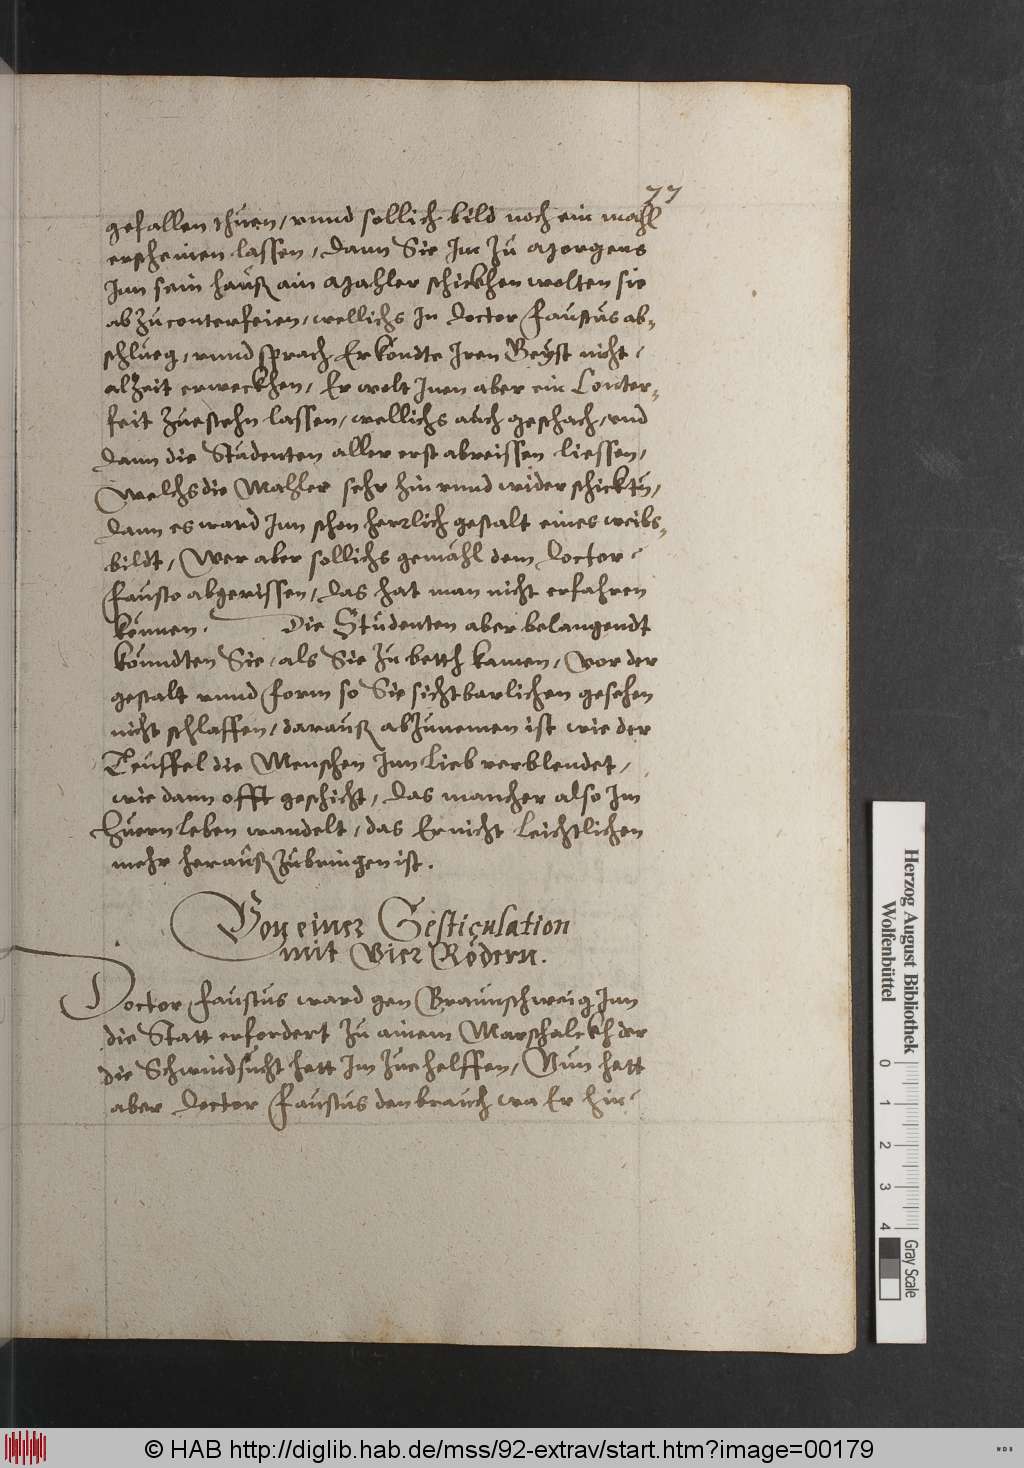 77
gefallen thuen, vnnd sollich bild noch ein mahl
erscheinen lassen, dann Sie Im zu Morgens
Inn sein hauß ain Mahler schickhen wolten sie
abzuconterfeien, wellichs In doctor Faustus ab-
schlueg, vnnd sprach Er kondte Iren Geyst nicht
alzeit erweckhen, Er wolt Inen aber ein Conter-
feit zuestehn lassen, wellichs auch geschach, vnd
dann die Studenten aller erst abreissen liessen,
Welchs die Mahler sehr hin vnnd wider schicktn,
dann es ward Inn schon herrlich gestalt eines weibs-
bildt, Wer aber sollichs gemähl dem doctor
Fausto abgerissen, das hat man nicht erfahren
können. Die Studenten aber belangendt
konndten Sie, als Sie zu betth kamen, vor der
gestalt vnnd form so Sie sichtbarlichen gesehen
nicht schlaffen, darauß abzunemen ist wie der
Teuffel die Menschen Inn lieb verblendet,
wie dann offt geschicht, das mancher also Im
Huern leben wandelt, das Er nicht leichtlichen
mehr herauß zubringen ist.
Von einer Gesticulation
mit Vier Rödern.
Doctor Faustus ward gen Braunschweig Inn
die Statt erfordert zu ainem Marschalckh der
die Schwindsucht hett Im zue helffen, Nun hett
aber doctor Faustus den brauch wa Er hin
Herzog August Bibliothek
Wolfenbüttel
0 1 2 3 4
Gray Scale
© HAB http://diglib.hab.de/mss/92-extrav/start.htm?image=00179
WDB